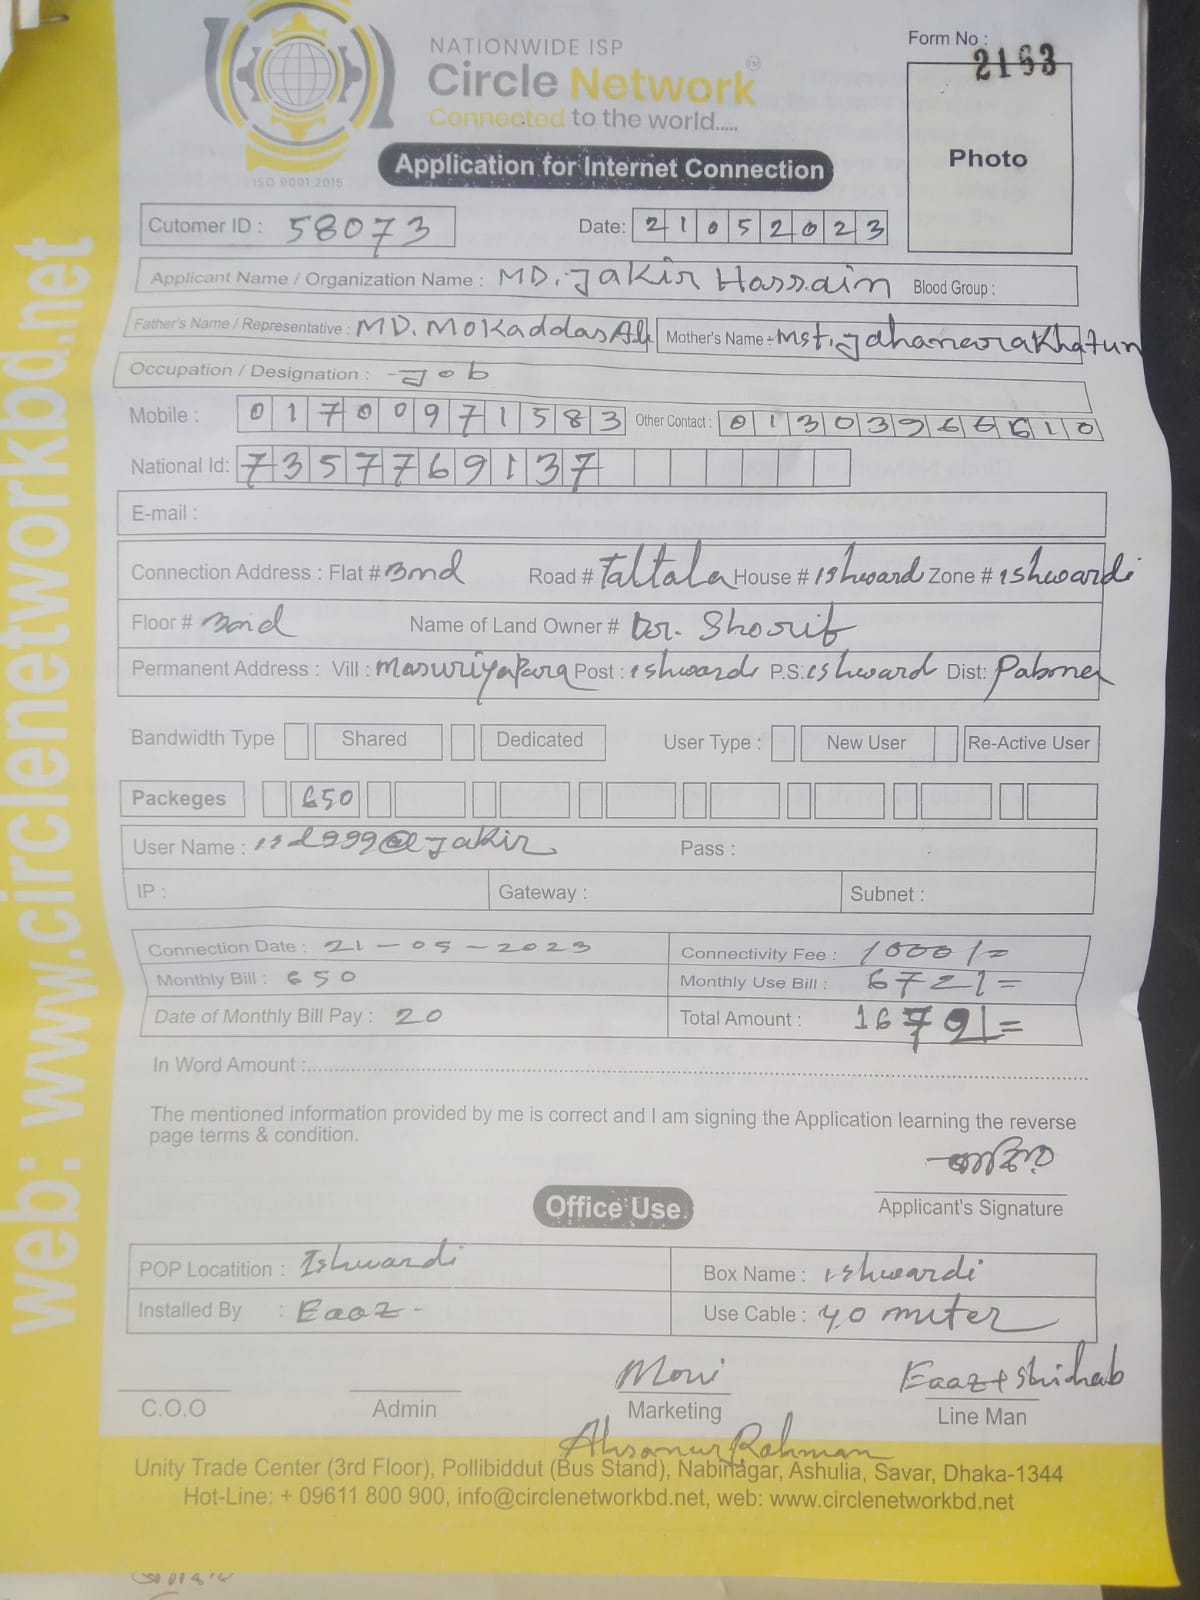 NATIONWIDE ISP
Circle Network
Connected to the world.....
ISO 9001:2015
Form No : 2163
Photo
Application for Internet Connection
Cutomer ID : 58073
Date: 21052023
Applicant Name / Organization Name : MD. Jakir Hossain Blood Group :
Father's Name / Representative : MD. Mokaddas Ali Mother's Name : Mst. Jahaneora Khatun
Occupation / Designation : - Job
Mobile : 01700971583 Other Contact : 01303966610
National Id: 7357769137
E-mail :
Connection Address : Flat # 3nd Road # Taltala House # ishward Zone # ishwardi
Floor # 3nd Name of Land Owner # Dr. Shorif
Permanent Address : Vill : Masuriyapara Post : ishwardi P.S: ishward Dist: Pabna
Bandwidth Type Shared Dedicated User Type : New User Re-Active User
Packeges 650
User Name : isd999@jakir Pass :
IP : Gateway : Subnet :
Connection Date : 21-05-2023 Connectivity Fee : 1000/=
Monthly Bill : 650 Monthly Use Bill : 672/=
Date of Monthly Bill Pay : 20 Total Amount : 1672/=
In Word Amount :
The mentioned information provided by me is correct and I am signing the Application learning the reverse
page terms & condition.
Applicant's Signature
Office Use
POP Locatition : Ishwardi Box Name : ishwardi
Installed By : Eaaz - Use Cable : 40 meter
Moni Eaaz + Shihab
C.O.O Admin Marketing Line Man
Ahsanur Rahman
Unity Trade Center (3rd Floor), Pollibiddut (Bus Stand), Nabinagar, Ashulia, Savar, Dhaka-1344
Hot-Line: + 09611 800 900, info@circlenetworkbd.net, web: www.circlenetworkbd.net
web: www.circlenetworkbd.net